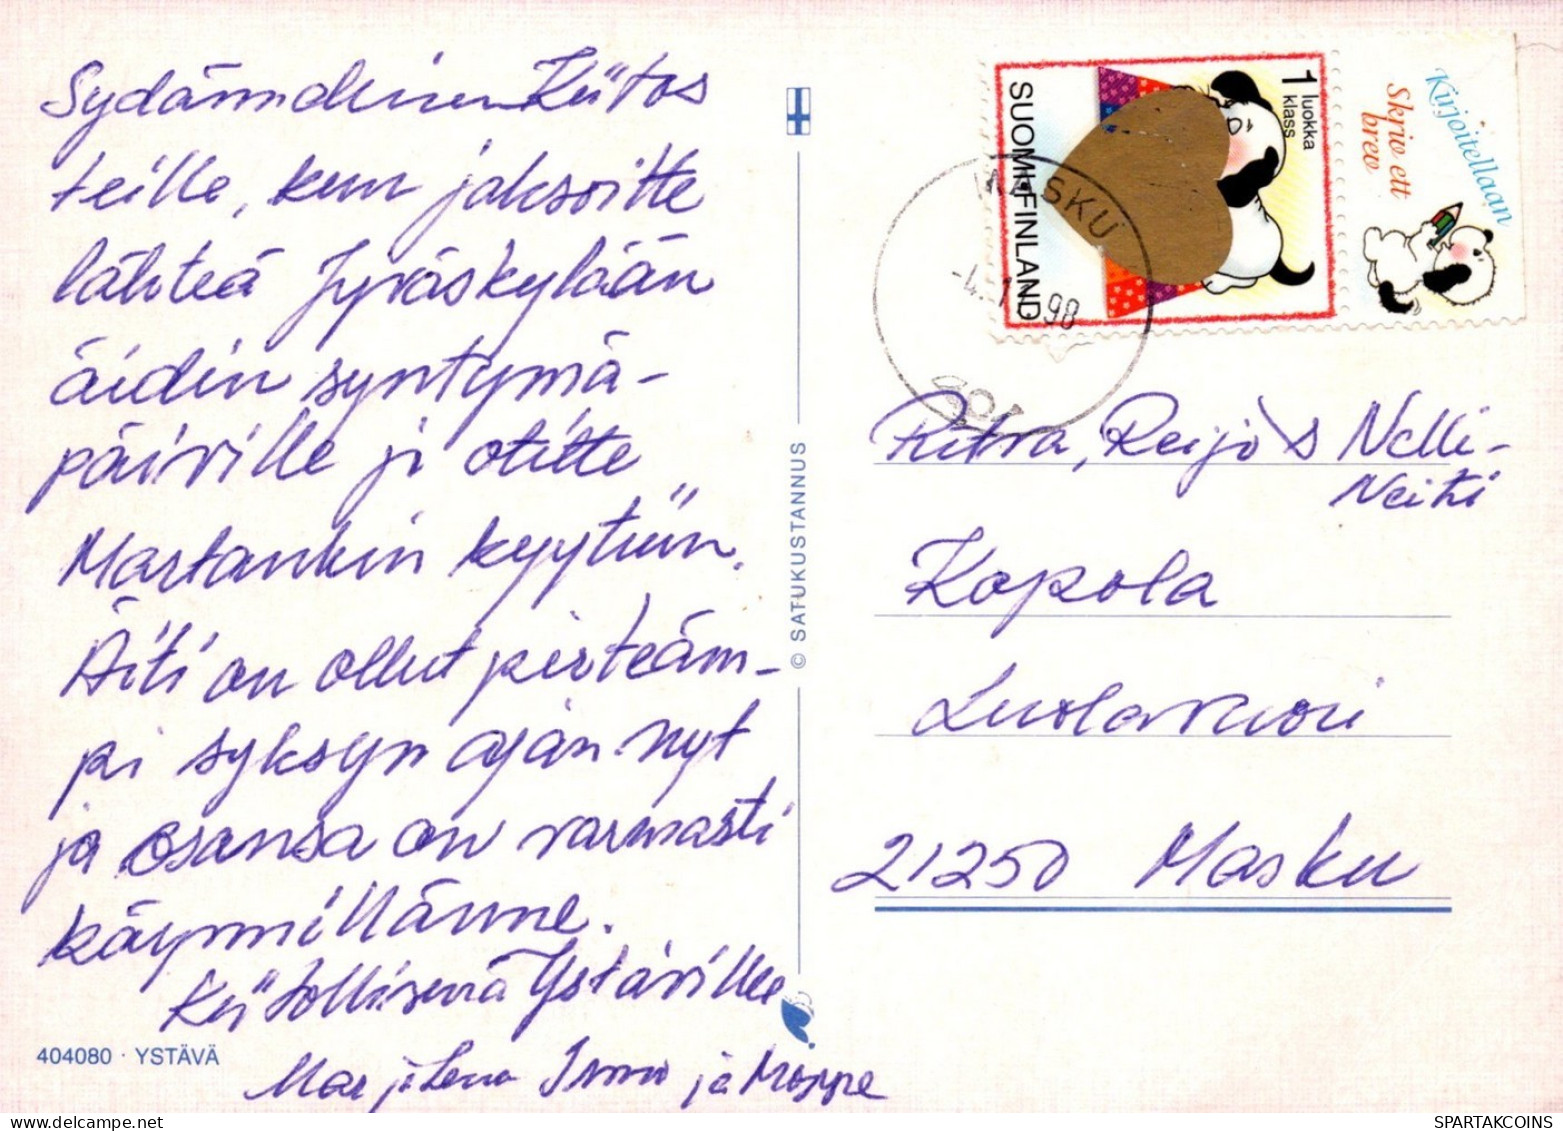 Sydämmellinen Kiitos
teille, kun jaksoitte
lähteä Jyväskylään
äidin syntymä-
päiville ja otitte
Martankin kyytiin.
Äiti on ollut pirteäm-
pi syksyn ajan nyt
ja osansa on varmasti
käynnillänne.
Kiitollisena Ystäville
Marjaleena Immo ja Moppe
404080 · YSTÄVÄ
© SATUKUSTANNUS
SUOMI-FINLAND
1 luokka
klass
Kirjoitellaan
Skriv ett
brev
MASKU
-4.1 98
Ritva, Reijo & Nelli-
Neiti
Kopola
Luolavuori
21250 Masku
SPARTAKCOINS